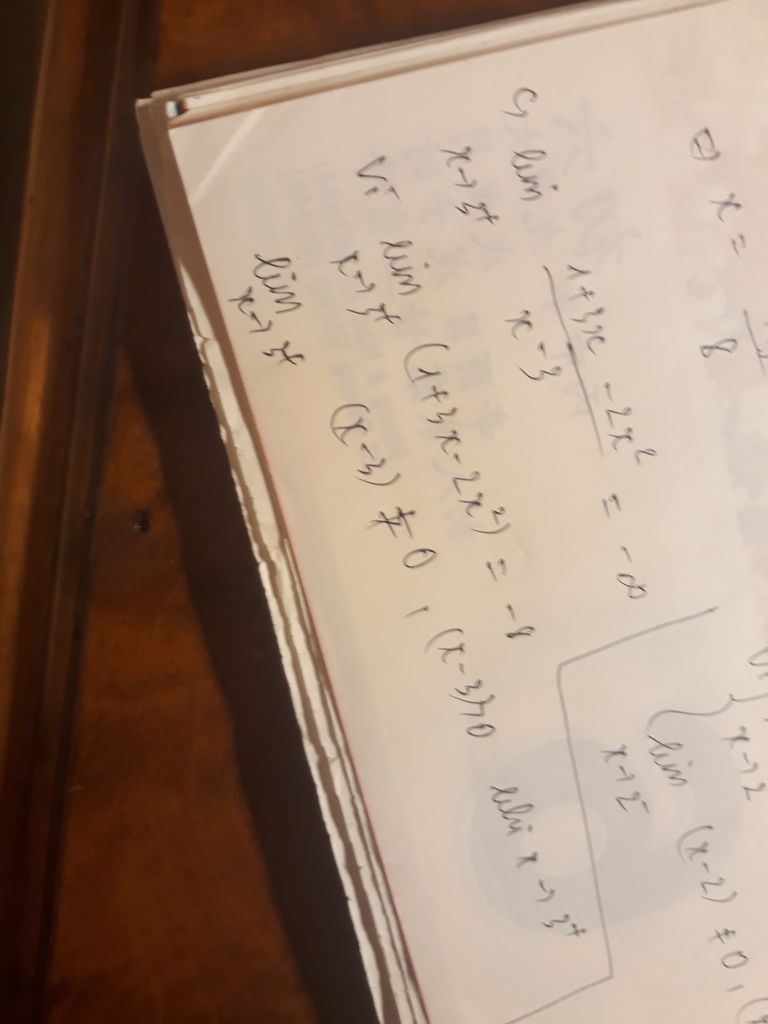 ⇒ x =
8
c, lim x→3⁺ (1+3x-2x²)/(x-3) = -∞
Vì lim x→3⁺ (1+3x-2x²) = -8
lim x→3⁺ (x-3) ≠ 0, (x-3)>0 khi x→3⁺
Vì { x→2
lim x→2⁻ (x-2) ≠ 0, (